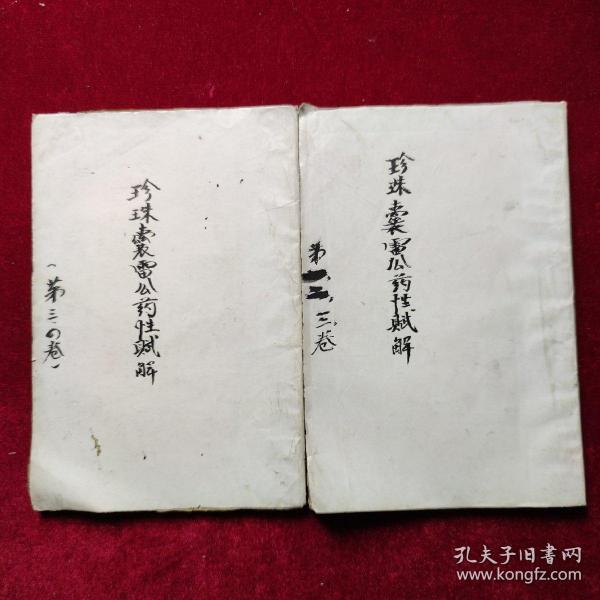 珍珠囊雷公药性赋解
第二、三、卷
珍珠囊雷公药性赋解
(第三四卷)
孔夫子旧书网
www.kongfz.com